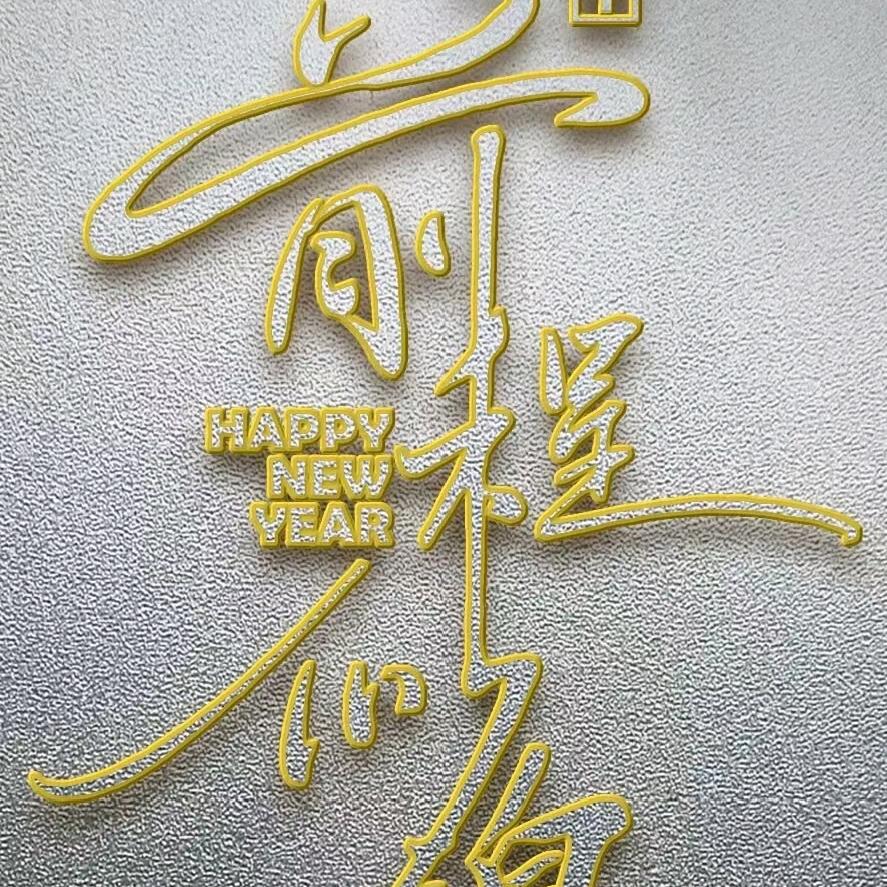 前
程
HAPPY
NEW
YEAR
似